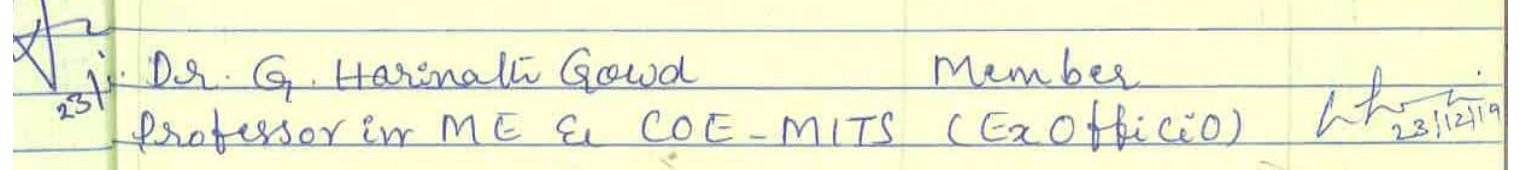 Dr. G. Harinath Gowd Member
Professor in ME & COE-MITS (ExOfficio)
23/12/19